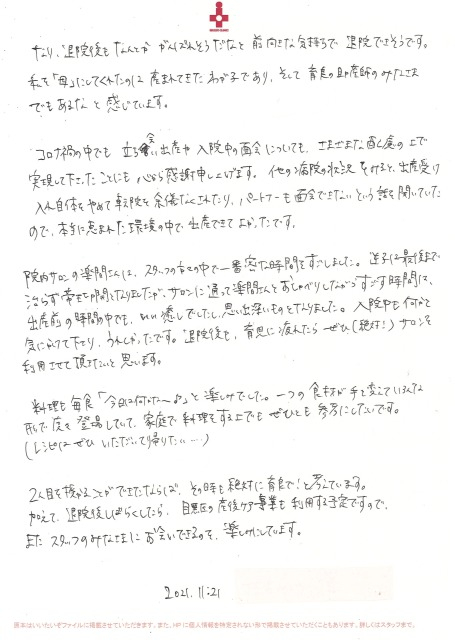 なり、退院後もなんとか がんばれそうだなと 前向きな気持ちで 退院できそうです。
私を「母」にしてくれたのは 産まれてきた わが子であり、そして 育良の助産師のみなさま
でもあるなと 感じています。
コロナ禍の中でも 立ち会い出産や 入院中の面会についても、さまざまな配慮の上で
実現して下さったことにも 心から感謝申し上げます。 他の病院の状況をみると、出産受け
入れ自体をやめて転院を余儀なくされたり、パートナーも面会できないという話を聞いていた
ので、本当に恵まれた環境の中で、出産できてよかったです。
院内サロンの楽間さんは、スタッフの方々の中で一番密な時間をすごしました。逆子は最後まで
治らず帝王切開となりましたが、サロンに通って楽間さんとおしゃべりしながらすごす時間は、
出産前の時間の中でも、癒しでしたし、思い出深いものとなりました。入院中も何かと
気にかけて下さり、うれしかったです。退院後も、育児に疲れたら ぜひ(絶対!) サロンを
利用させて頂きたいと思います。
料理も毎食「今日は何かな〜♪」と 楽しみでした。一つの食材が手を変えていろんな
形で度々登場していて、家庭で料理をする上でも ぜひとも 参考にしたいです。
(レシピはぜひ いただいて帰りたい…)
2人目を授かることができたならば、その時も絶対に育良で!と考えています。
加えて、退院後しばらくしたら、目黒区の産後ケア事業も利用する予定ですので、
また スタッフのみなさまに お会いできるのを、楽しみにしています。
2021.11.21
原本はいいたいぞファイルに掲載させていただきます。また、HPに個人情報を特定されない形で掲載させていただくこともあります。詳しくはスタッフまで。